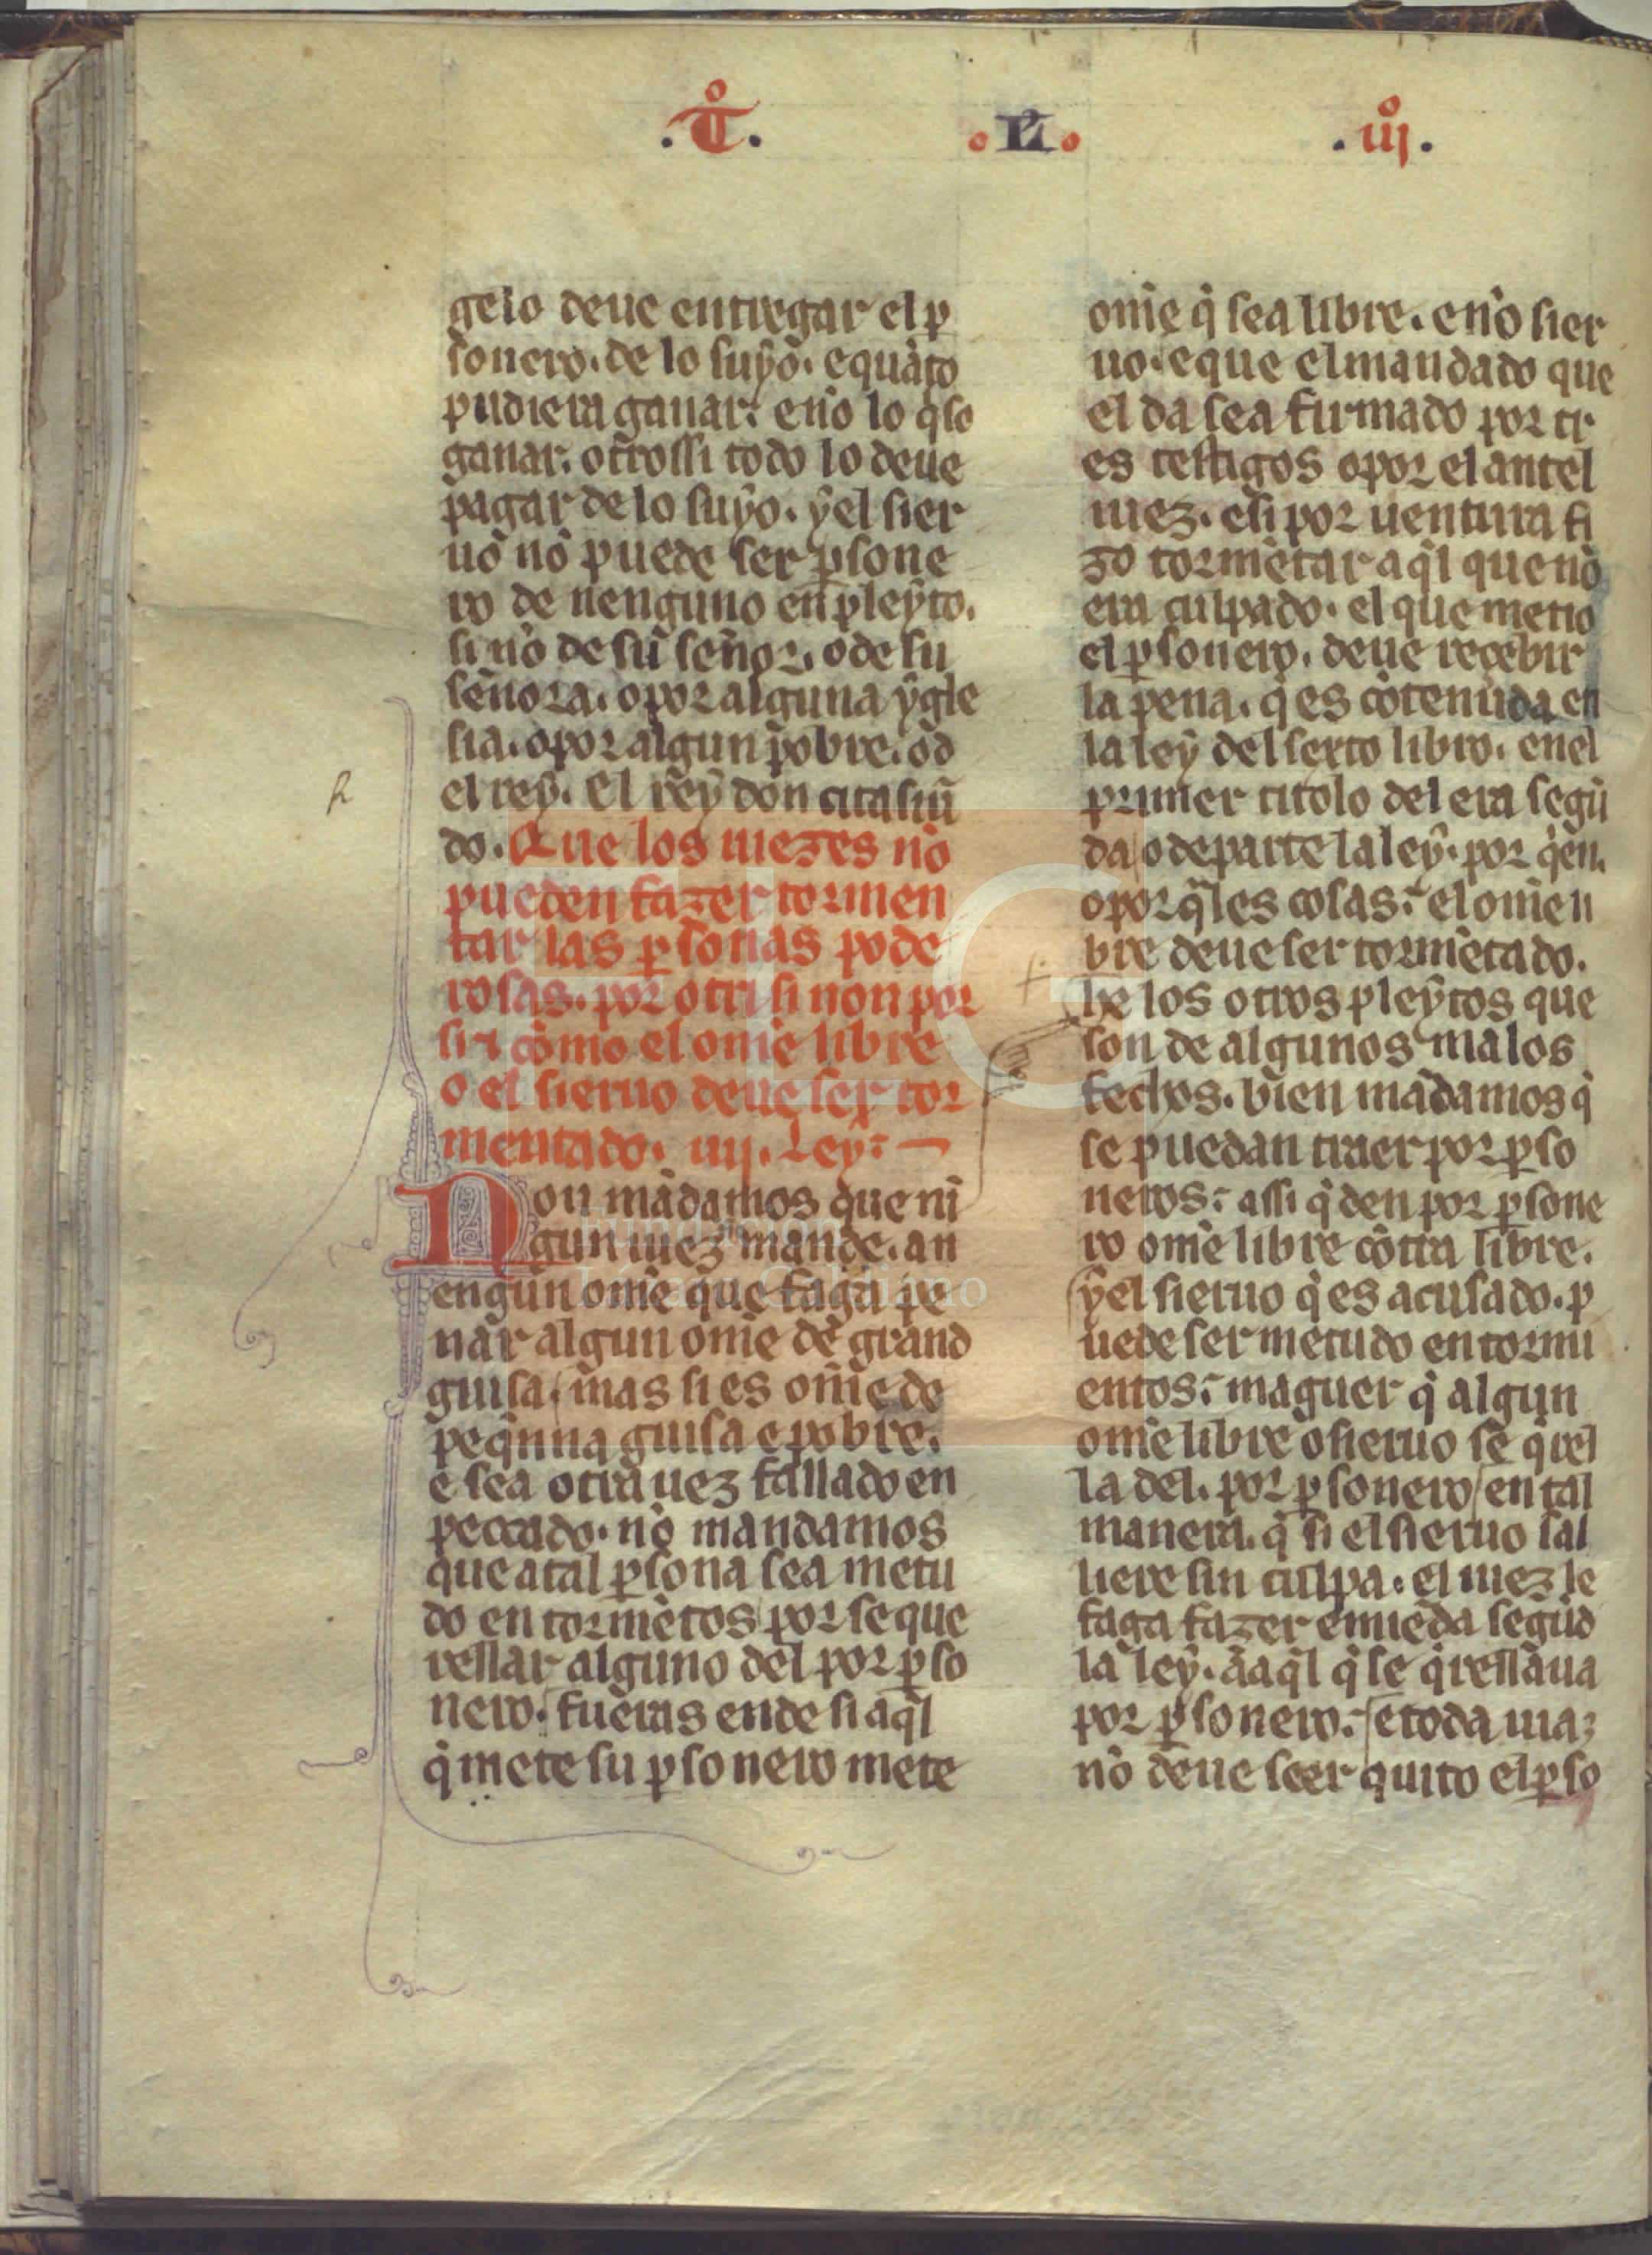 .Tº. .Lº. .iijº.
gelo deue entregar el p
sonero. de lo suyo. e quãto
pudiera ganar. e nõ lo q̃ so
ganar. otrossi todo lo deue
pagar de lo suyo. ẏ el sier
uo nõ puede ser ꝑsone
ro de nenguno en pleẏto.
si nõ de su señor. o de su
señora. o por alguna ẏgle
sia. o por algun pobre. o d
el reẏ. El reẏ don citasiũ
do. Que los iuezes nõ
pueden fazer tormen
tar las ꝑsonas pode
rosas. por otri si non por
si ⁊ cõmo el om̃e libre
o el sieruo deue ser tor
mentado. iiij. Leẏ.
Non mãdamos que nĩ
gun iuez mande. an
engun om̃e que faga pe
nar algun om̃e de grand
guisa. mas si es om̃e de
peq̃nna guisa e pobre.
e sea otra uez fallado en
peccado. nõ mandamos
que atal ꝑsona sea metu
do en tormẽtos por se que
rellar alguno del por ꝑso
nero. fueras ende si aq̃l
q̃ mete su ꝑsonero mete
om̃e q̃ sea libre. e nõ sier
uo. e que el mandado que
el da sea firmado por tr
es testigos o por el antel
iuez. e si por uentura fi
zo tormẽtar aq̃l que nõ
era culpado. el que metio
el ꝑsonero. deue recebir
la pena. q̃ es cõtenuda en
la leẏ del sexto libro. en el
primer titolo del era segũ
da o departe la leẏ. por q̃en.
o por q̃les cosas. el om̃e li
bre deue ser tormẽtado.
De los otros pleẏtos que
son de algunos malos
fechos. bien mãdamos q̃
se puedan traer por ꝑso
neros. assi q̃ den por ꝑsone
ro om̃e libre cõtra libre.
ẏ el sieruo q̃ es acusado. p
uede ser metudo en tormi
entos. maguer q̃ algun
om̃e libre o sieruo se q̃rel
la del. por ꝑsonero en tal
manera. q̃ si el sieruo sal
liere sin culpa. el iuez le
faga fazer emiẽda segũd
la leẏ. a aq̃l q̃ se q̃rellaua
por ꝑsonero. e toda uia
nõ deue seer quito el ꝑso
Fundación
Lázaro Galdiano
FLG